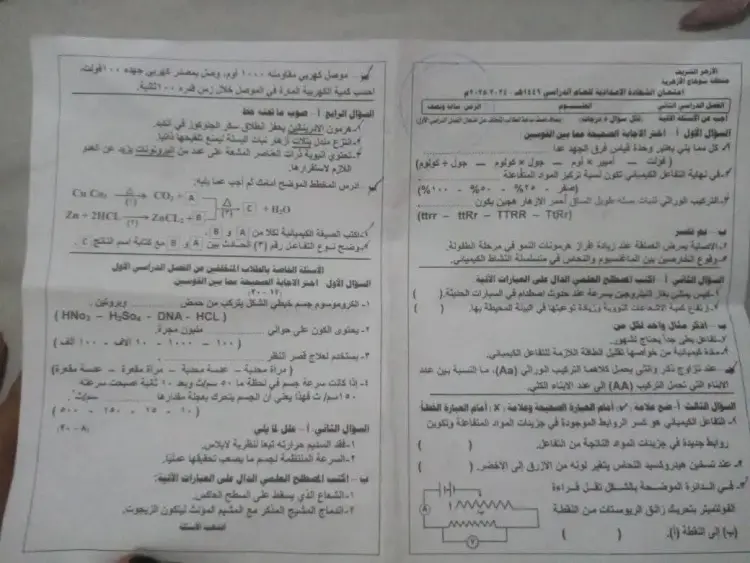 الأزهر الشريف
منطقة سوهاج الأزهرية
امتحان الشهادة الإعدادية للعام الدراسي ١٤٤٦هـ - ٢٠٢٤ / ٢٠٢٥م
الفصل الدراسي الثاني العلـــوم الزمن ساعة ونصف
أجب عن الأسئلة الآتية (لكل سؤال ١٠ درجات)
السؤال الأول أ - اختر الإجابة الصحيحة مما بين القوسين
١- كل مما يلي يعتبر وحدة قياس فرق الجهد عدا
( فولت – أمبير × أوم – جول × كولوم – جول ÷ كولوم)
٢- في نهاية التفاعل الكيميائي تكون نسبة تركيز المواد المتفاعلة
(صفر - ٢٥% - ٥٠% - ١٠٠%)
٣- التركيب الوراثي لنبات بسلة طويل الساق أحمر الأزهار هجين يكون
(ttrr – ttRr – TTRR – TtRr)
ب – بم تفسر
١- الإصابة بمرض العملقة عند زيادة إفراز هرمونات النمو في مرحلة الطفولة.
٢- وقوع الخارصين بين الماغنسيوم والنحاس في متسلسلة النشاط الكيميائي.
السؤال الثاني أ - اكتب المصطلح العلمي الدال على العبارات الآتية
١- كيس يمتلئ بغاز النيتروجين بسرعة عند حدوث اصطدام في السيارات الحديثة. ( )
٢- ارتفاع كمية الإشعاعات النووية وزيادة نوعيتها في البيئة المحيطة بها. ( )
ب- اذكر مثال واحد لكل من
١- تفاعل بطئ جداً يحتاج لشهور.
٢- مادة كيميائية من خواصها تقليل الطاقة اللازمة للتفاعل الكيميائي.
جـ عند تزاوج ذكر وأنثى يحمل كلاهما التركيب الوراثي (Aa)، ما النسبة بين عدد
الأبناء التي تحمل التركيب (AA) إلى عدد الأبناء الكلي.
السؤال الثالث أ - ضع علامة ✓ أمام العبارة الصحيحة وعلامة × أمام العبارة الخطأ
١- التفاعل الكيميائي هو كسر الروابط الموجودة في جزيئات المواد المتفاعلة وتكوين
روابط جديدة في جزيئات المواد الناتجة من التفاعل. ( )
٢- عند تسخين هيدروكسيد النحاس يتغير لونه من الأزرق إلى الأخضر. ( )
٣- في الدائرة الموضحة بالشكل تقل قراءة
الفولتميتر بتحريك زالق الريوستات من النقطة
(ب) إلى النقطة (أ). ( )
A
V
ب- موصل كهربي مقاومته ١٠٠٠ أوم، وصل بمصدر كهربي جهده ١٠٠ فولت،
احسب كمية الكهربية المارة في الموصل خلال زمن قدره ١٠٠ ثانية.
السؤال الرابع أ - صوب ما تحته خط
١- هرمون الأدرينالين يحفز انطلاق سكر الجلوكوز في الكبد.
٢- انتزع مندل بتلات أزهار نبات البسلة ليمنع تلقيحها ذاتيا.
٣- تحتوي أنوية ذرات العناصر المشعة على عدد من البروتونات يزيد عن العدد
اللازم لاستقرارها.
ب- ادرس المخطط الموضح أمامك ثم أجب عما يليه:
Cu Co₃ △ (١) CO₂ + A
Zn + 2HCL (٢) ZnCL₂ + B
△ (٣) C + H₂O
١- اكتب الصيغة الكيميائية لكلا من A و B .
٢- وضح نوع التفاعل رقم (٣) الحادث بين A و B مع كتابة اسم الناتج C .
الأسئلة الخاصة بالطلاب المتخلفين من الفصل الدراسي الأول
السؤال الأول - اختر الإجابة الصحيحة مما بين القوسين:
١- الكروموسوم جسم خيطي الشكل يتركب من حمض .......... وبروتين .
( HNO₃ – H₂So₄ - DNA - HCL )
٢- يحتوى الكون على حوالي .......... مليون مجرة.
(١٠٠ – ١٠٠٠ - ١٠ آلاف - ١٠٠ ألف )
٣- يستخدم لعلاج قصر النظر ..........
( مرآة محدبة – عدسة محدبة – مرآة مقعرة – عدسة مقعرة)
٤- إذا كانت سرعة جسم في لحظة ما ٥٠ سم/ث وبعد ١٠ ثانية أصبحت سرعته
١٥٠ سم/ث فهذا يعني أن الجسم يتحرك بعجلة مقدارها .......... سم/ث²
( ١٠ - ٢٥ - ١٥٠ - ٥٠٠ )
السؤال الثاني أ - علل لما يلي
١- فقد السديم حرارته تبعا لنظرية لابلاس.
٢- السرعة المنتظمة لجسم ما يصعب تحقيقها عمليا.
ب – اكتب المصطلح العلمي الدال على العبارات الآتية:
١- الشعاع الذي يسقط على السطح العاكس.
٢- اندماج المشيج المذكر مع المشيج المؤنث ليتكون الزيجوت.
انتهت الأسئلة